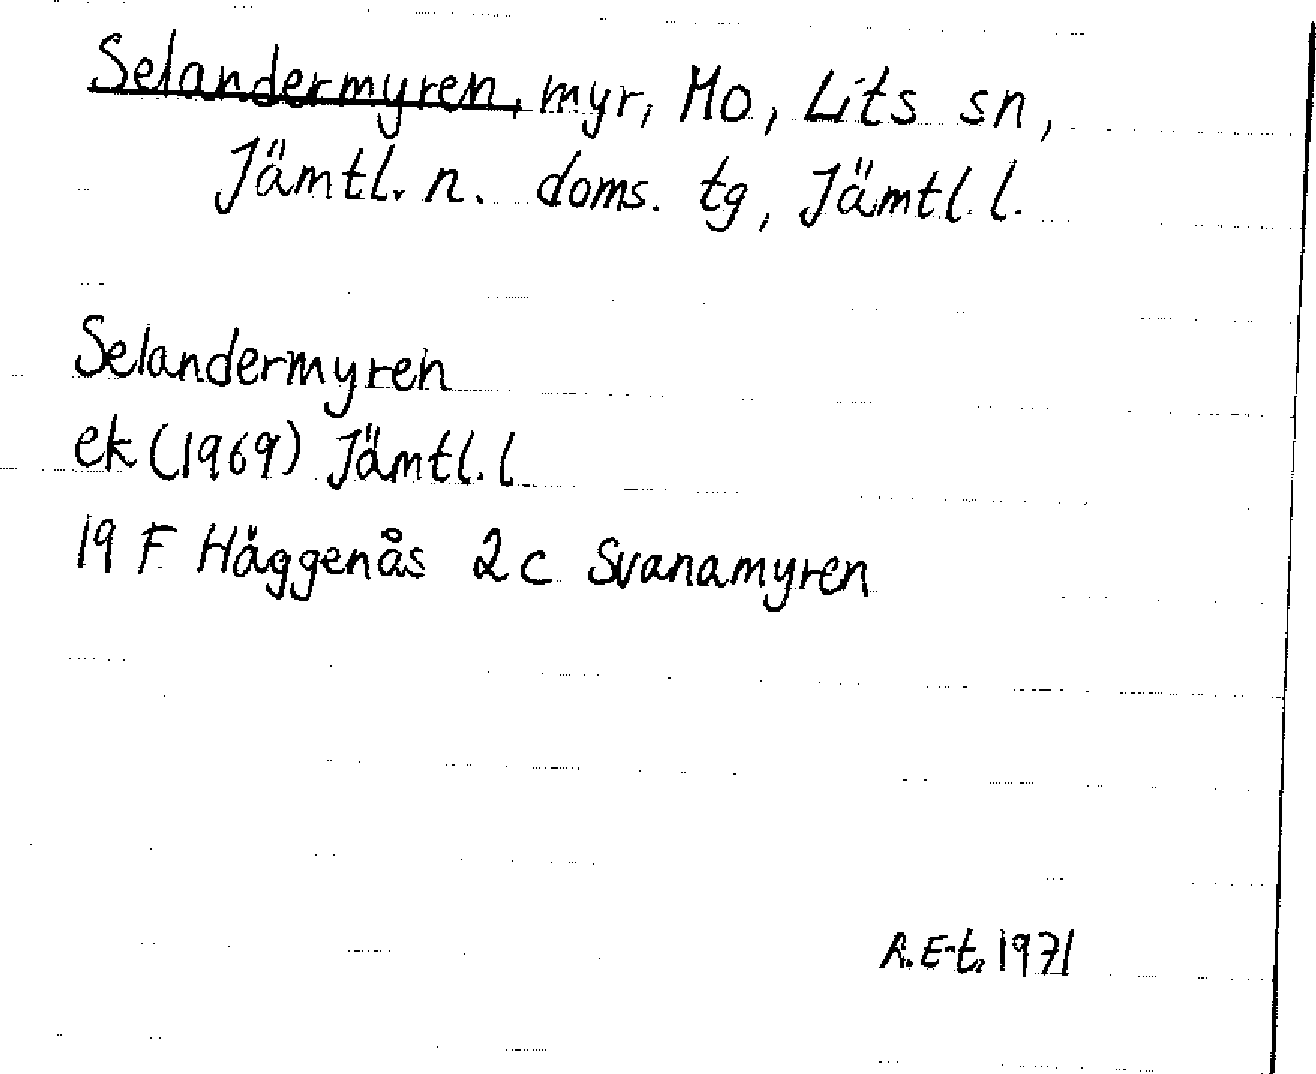 Selandermyren, myr, Mo, Lits sn,
Jämtl. n. doms. tg, Jämtl. l.
Selandermyren
ek (1969) Jämtl. l
19 F Häggenås 2 c Svanamyren
R. E-t. 1971